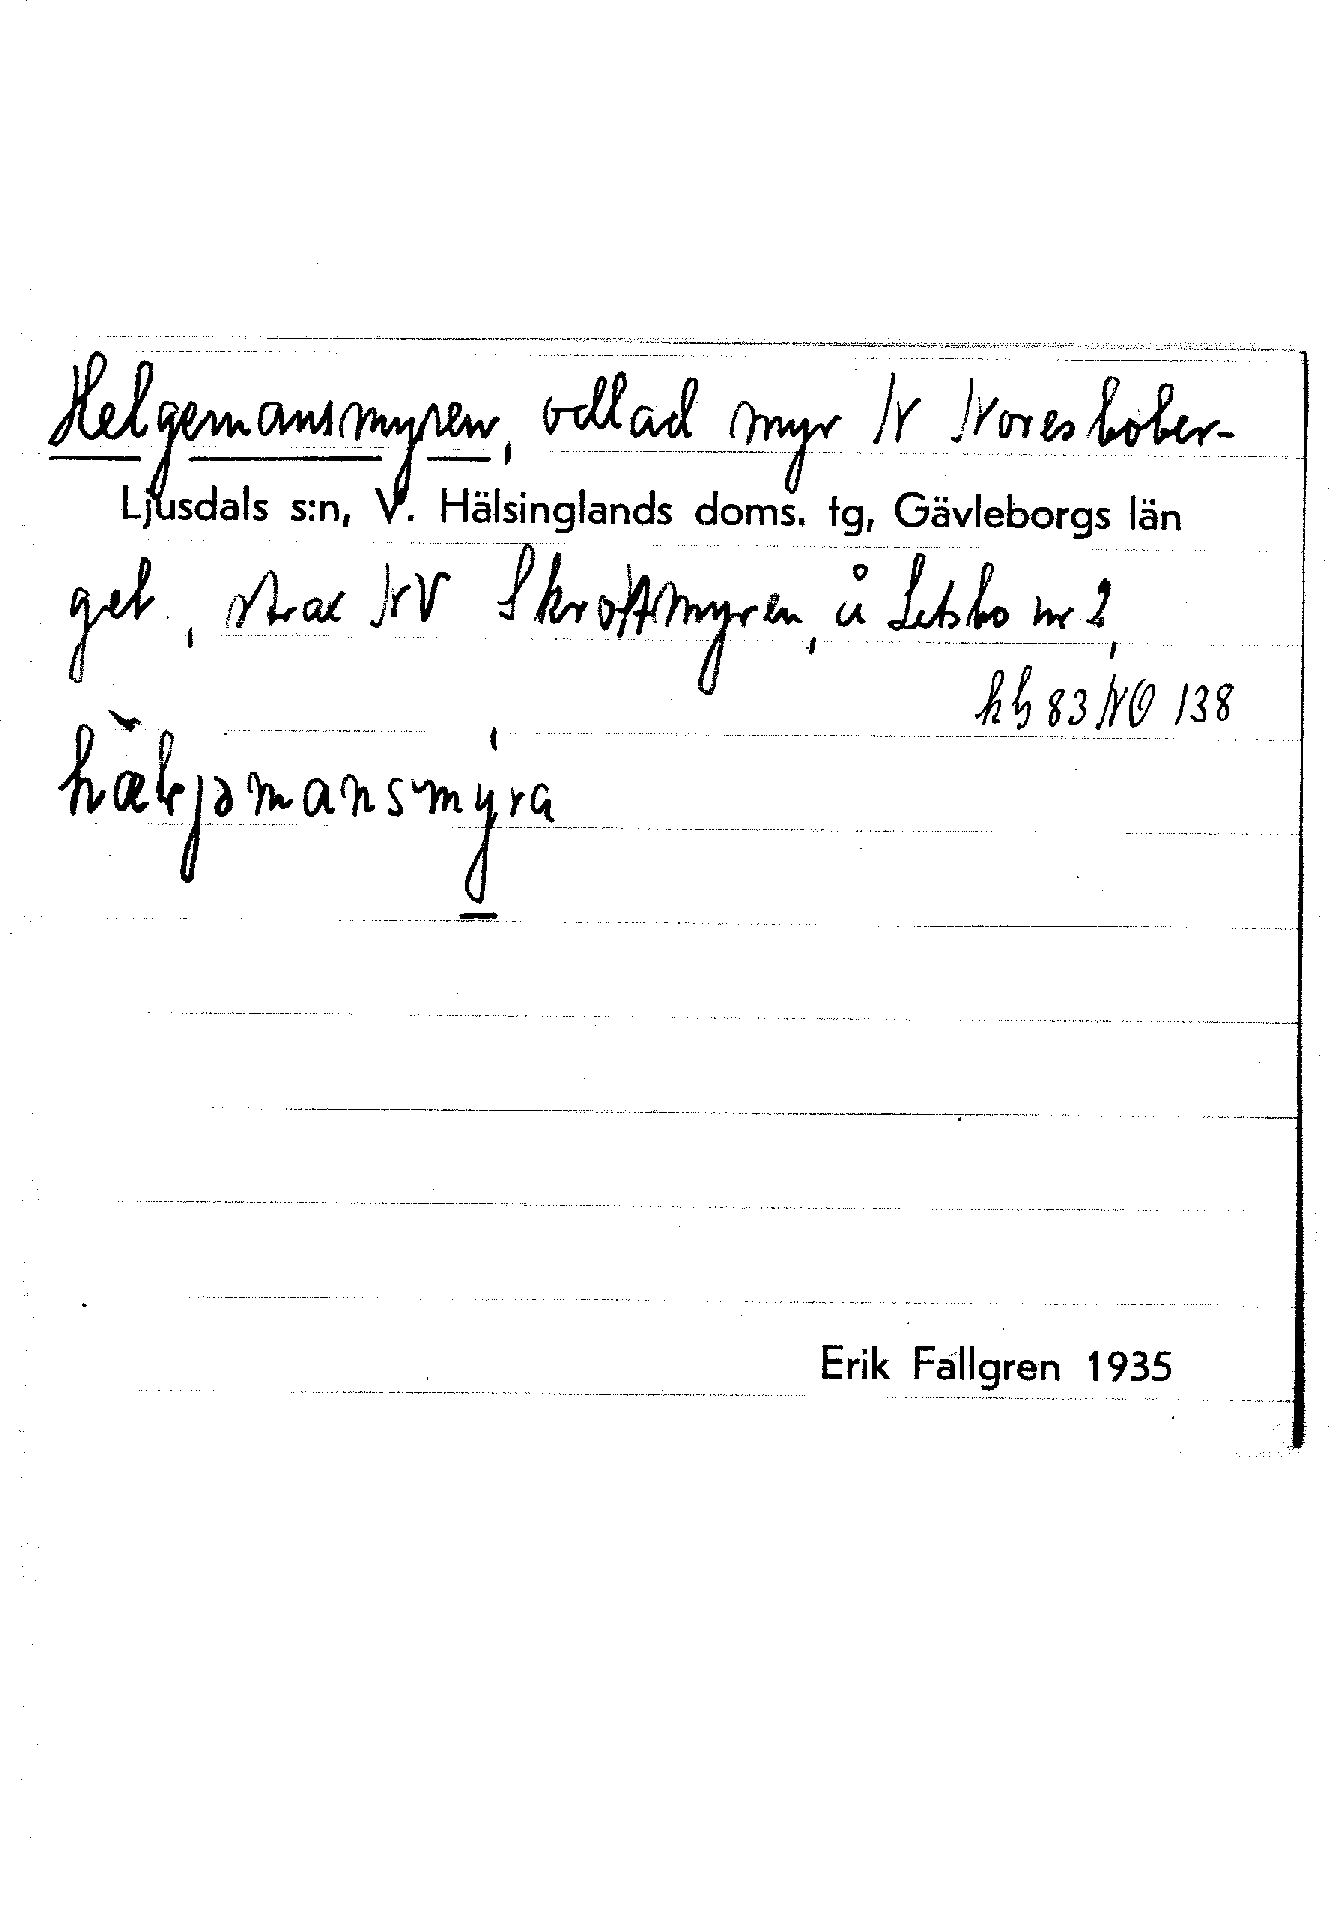 Helgemansmyren, odlad myr N Noresbober-
Ljusdals s:n, V. Hälsinglands doms. tg, Gävleborgs län
get, strax NV Skrottmyren, å Letsbo nr 2,
kb 83 NO 138
hæljəmansmyra
Erik Fallgren 1935